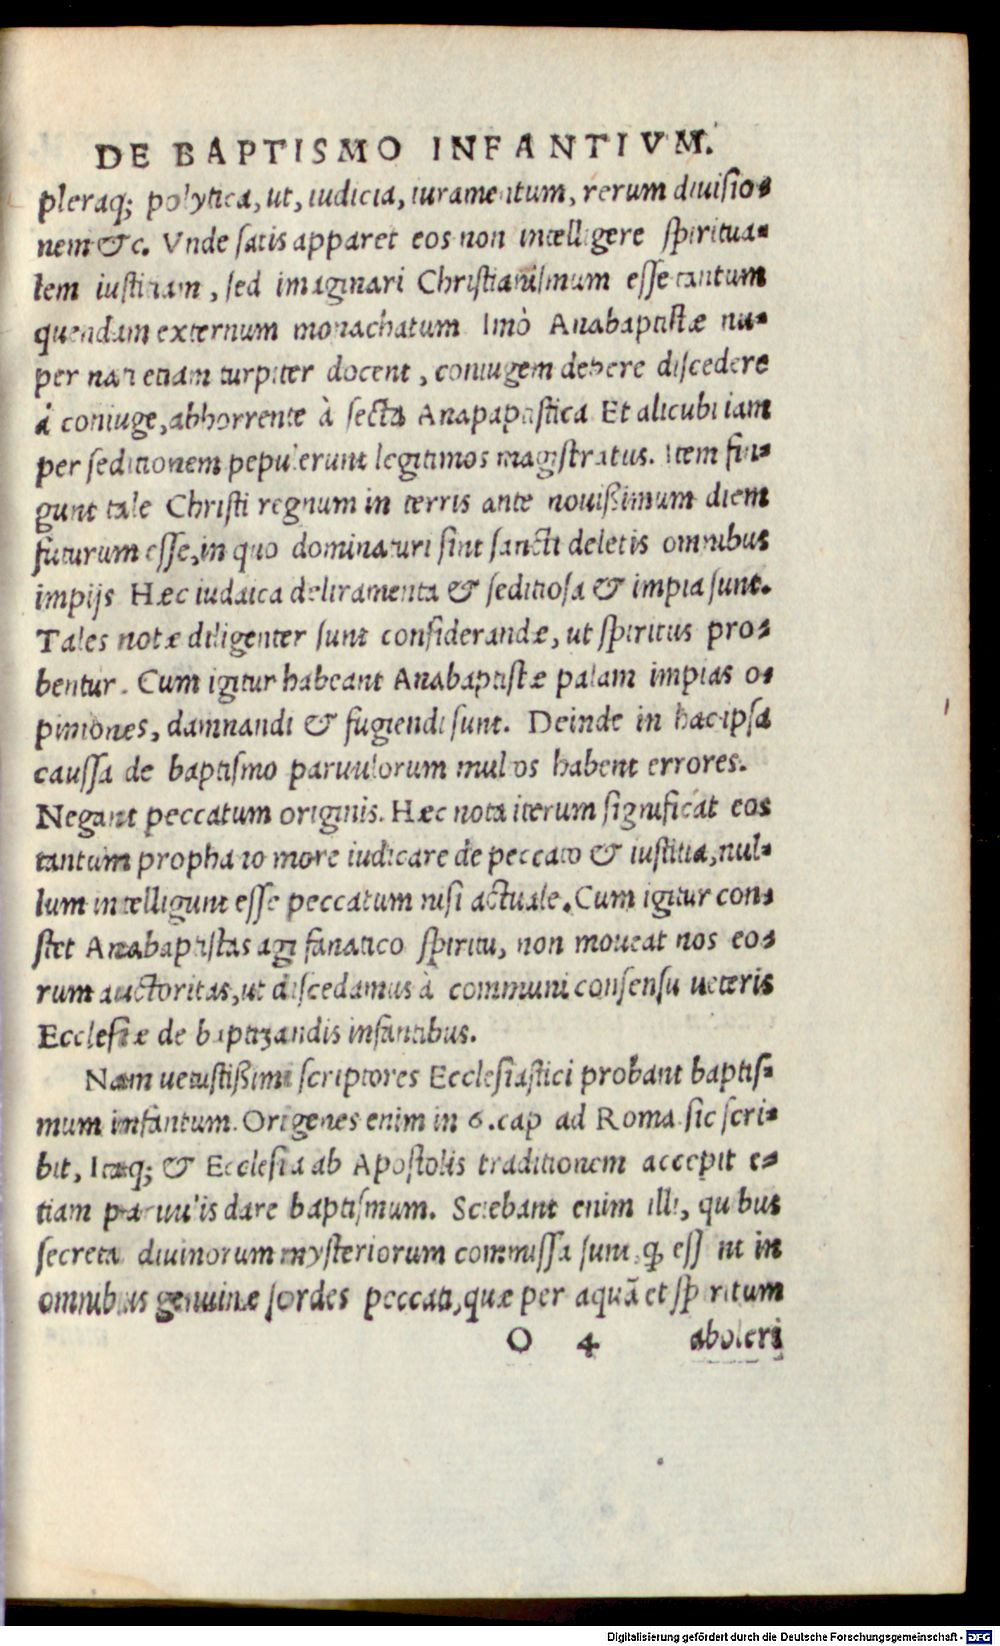 DE BAPTISMO INFANTIVM.
pleraq; polytica, ut, iudicia, iuramentum, rerum diuisio-
nem &c. Vnde satis apparet eos non intelligere spiritua-
lem iustitiam, sed imaginari Christianismum esse tantum
quendam externum monachatum Imò Anabaptistæ nu-
per nati etiam turpiter docent, coniugem debere discedere
à coniuge, abhorrente à secta Anapaptistica Et alicubi iam
per seditionem pepulerunt legitimos magistratus. Item fin-
gunt tale Christi regnum in terris ante nouißimum diem
futurum esse, in quo dominaturi sint sancti deletis omnibus
impijs Hæc iudaica deliramenta & seditiosa & impia sunt.
Tales notæ diligenter sunt considerandæ, ut spiritus pro-
bentur. Cum igitur habeant Anabaptistæ palam impias o-
piniones, damnandi & fugiendi sunt. Deinde in hac ipsa
caussa de baptismo paruulorum multos habent errores.
Negant peccatum originis. Hæc nota iterum significat eos
tantum prophano more iudicare de peccato & iustitia, nul-
lum intelligunt esse peccatum nisi actuale. Cum igitur con-
stet Anabaptistas agi fanatico spiritu, non moueat nos eo-
rum auctoritas, ut discedamus à communi consensu ueteris
Ecclesiæ de baptizandis infantibus.
Nam uetustißimi scriptores Ecclesiastici probant baptis-
mum infantum. Origenes enim in 6. cap ad Roma sic scri-
bit, Itaq; & Ecclesia ab Apostolis traditionem accepit e-
tiam paruulis dare baptismum. Sciebant enim illi, quibus
secreta diuinorum mysteriorum commissa sunt, ꝙ essent in
omnibus genuinæ sordes peccati, quæ per aquā et spiritum
O 4 aboleri
Digitalisierung gefördert durch die Deutsche Forschungsgemeinschaft - DFG